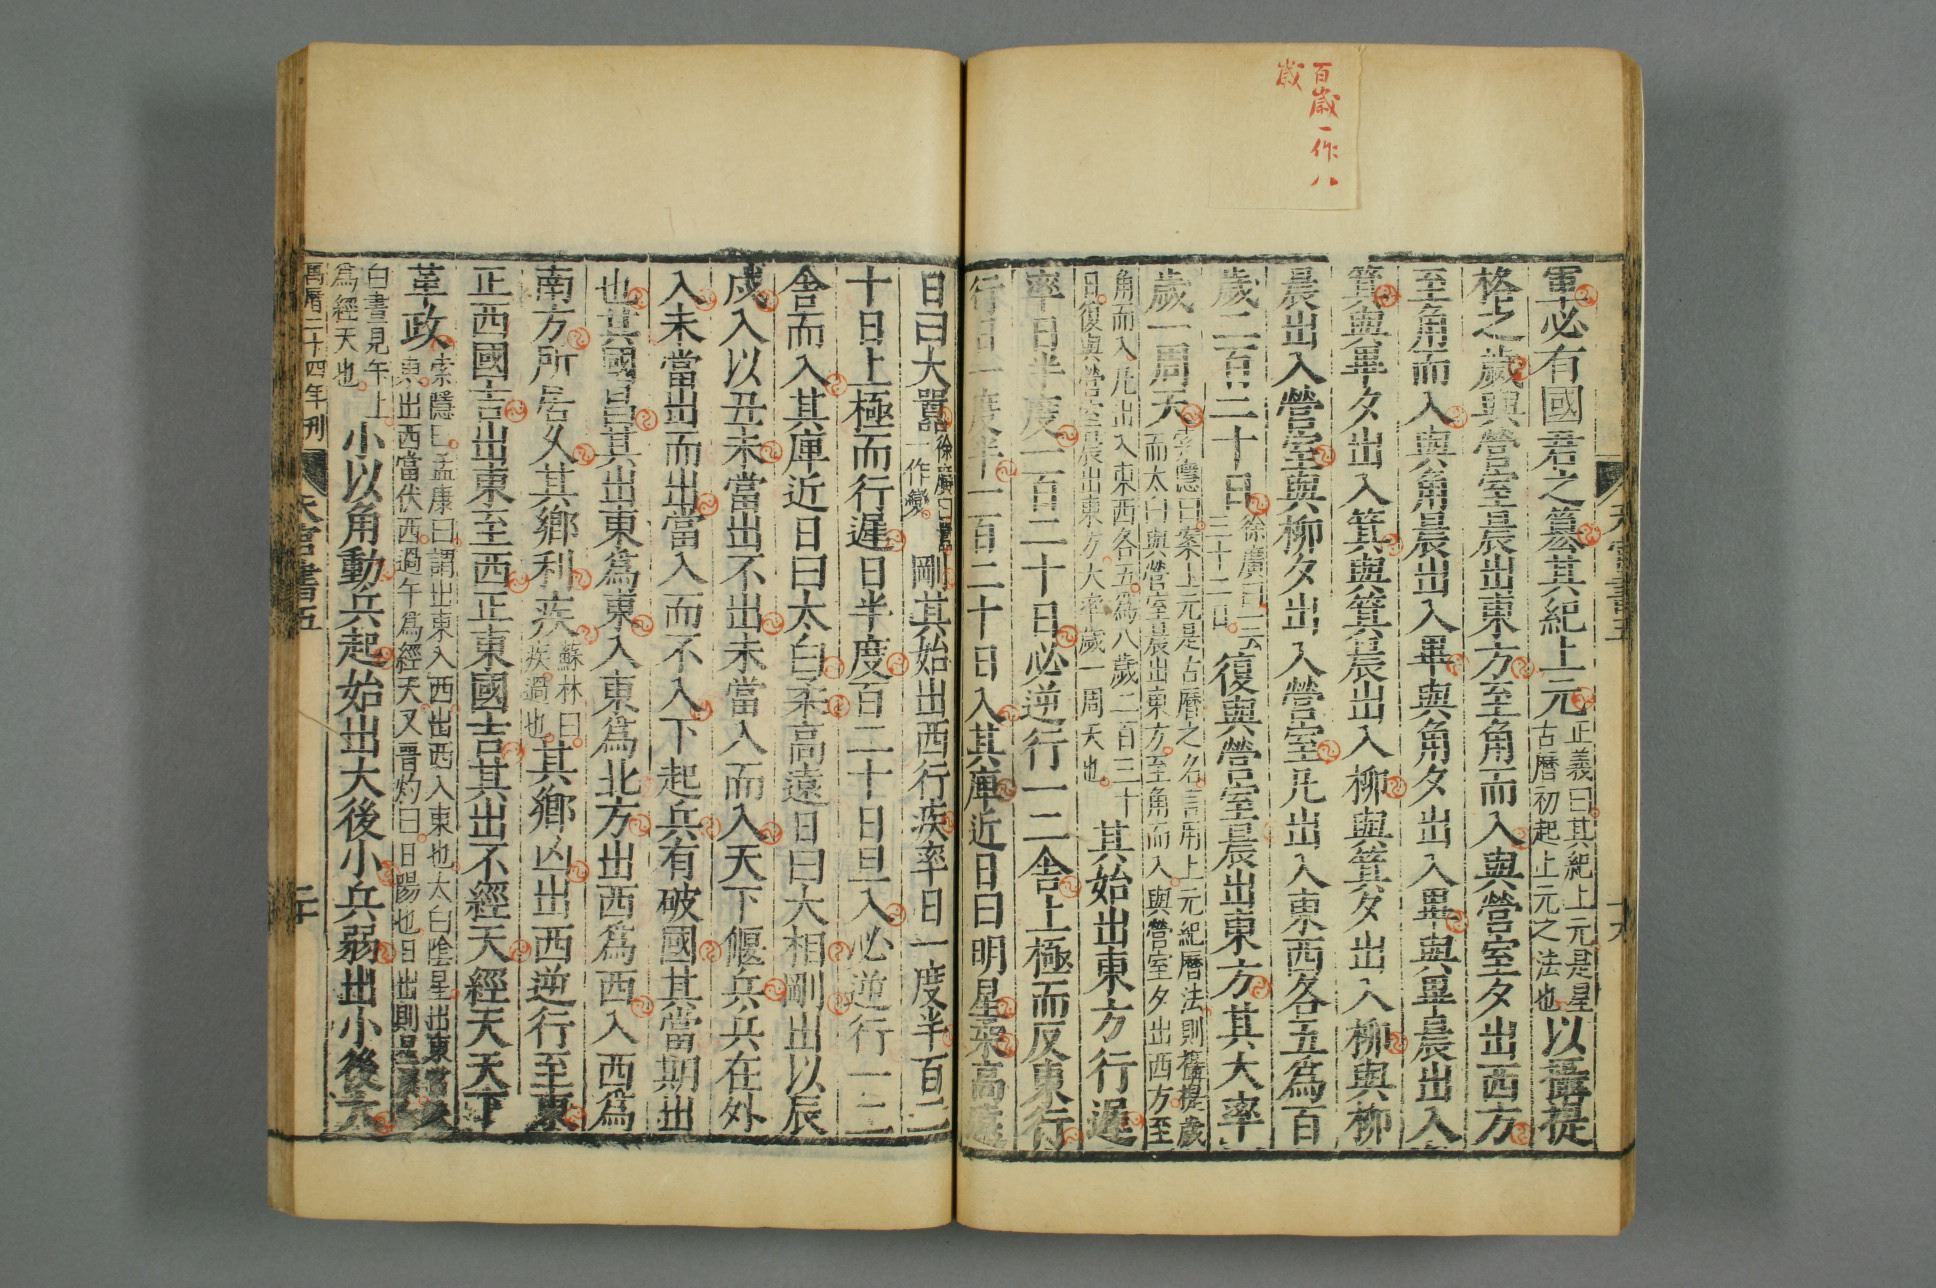 百歲一作八
歲
軍必有國君之簒其紀上元
正義曰其紀上元是星
古曆初起上元之法也
以攝提
格之歲與營室晨出東方至角而入與營室夕出西方
至角而入與角晨出入畢與角夕出入畢與畢晨出入
箕與畢夕出入箕與箕晨出入柳與箕夕出入柳與柳
晨出入營室與柳夕出入營室凡出入東西各五爲百
歲二百二十日
徐廣曰一云
三十二日
復與營室晨出東方其大率
歲一周天
索隱曰案上元是古曆之名言用上元紀曆法則攝提歲
而太白與營室晨出東方至角而入與營室夕出西方至
角而入凡出入東西各五爲八歲二百三十
日復與營室晨出東方大率歲一周天也
其始出東方行遲
率日半度一百二十日必逆行一二舍上極而反東行
行日一度半一百二十日入其庫近日曰明星柔高遠
日曰大嚻
徐廣曰
一作變
剛其始出西行疾率日一度半百二
十日上極而行遲日半度百二十日旦入必逆行一二
舍而入其庫近日曰太白柔高遠日曰大相剛出以辰
戍入以丑未當出不出未當入而入天下偃兵兵在外
入未當出而出當入而不入下起兵有破國其當期出
也其國昌其出東爲東入東爲北方出西爲西入西爲
南方所居久其鄉利疾
蘇林曰
疾過也
其鄉凶出西逆行至東
正西國吉出東至西正東國吉其出不經天經天天下
革政
索隱曰孟康曰謂出東入西出西入東也太白陰星出東
東出西當伏西過午爲經天又晉灼曰日陽也日出則星
白晝見午上
爲經天也
小以角動兵起始出大後小兵弱出小後大
萬曆二十四年刊
天官書五
二十